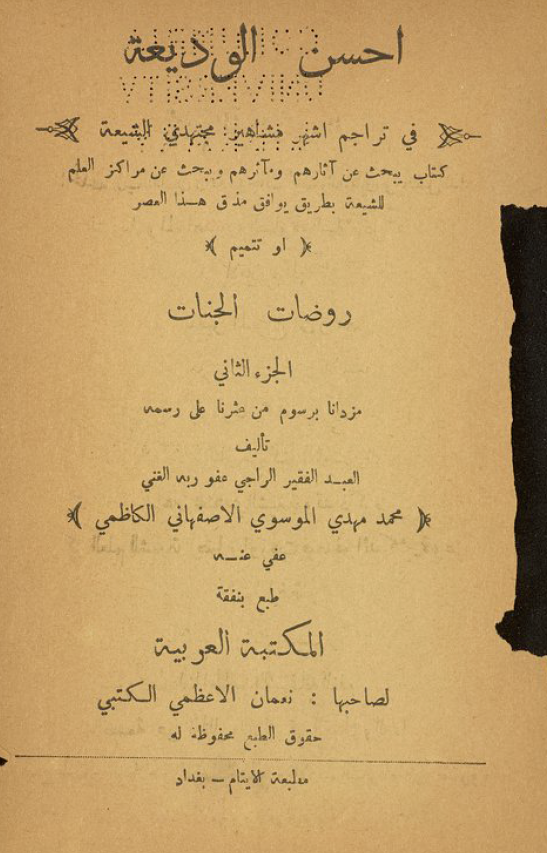 احسن الوديعة
في تراجم اشهر مشاهير مجتهدي الشيعة
كتاب يبحث عن آثارهم ومآثرهم ويبحث عن مراكز العلم
للشيعة بطريق يوافق مذق هذا العصر
( او تتميم )
روضات الجنات
الجزء الثاني
مزدانا برسوم من عثرنا على رسمه
تأليف
العبد الفقير الراجي عفو ربه الغني
( محمد مهدي الموسوي الاصفهاني الكاظمي )
عفي عنه
طبع بنفقة
المكتبة العربية
لصاحبها : نعمان الاعظمي الكتبي
حقوق الطبع محفوظة له
مطبعة الايتام — بغداد